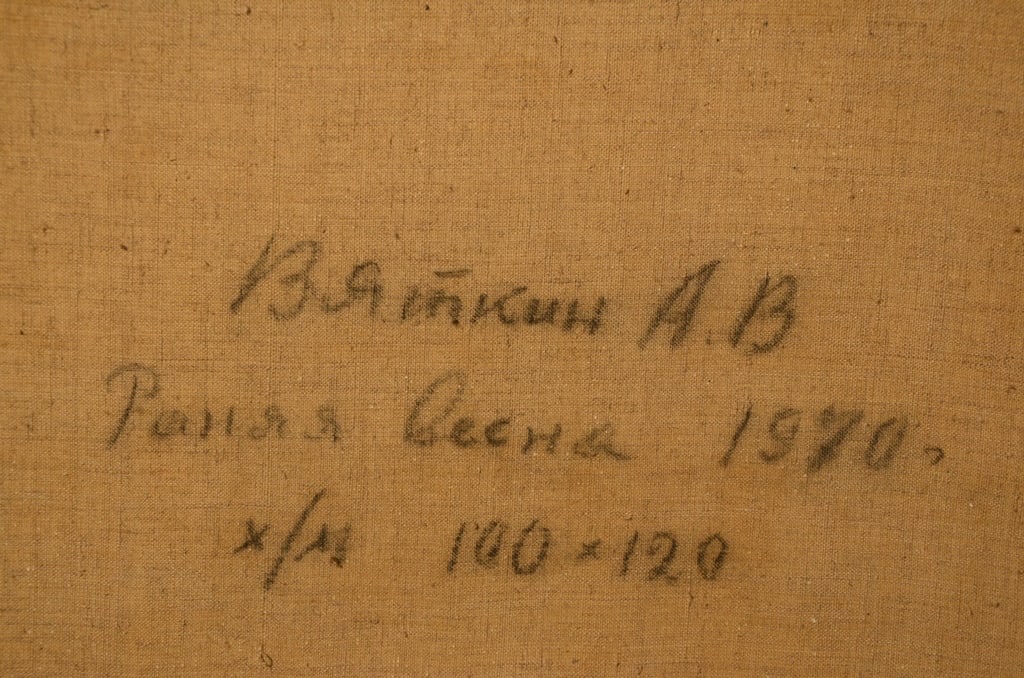 Вяткин А.В
Раняя Весна 1970г
х/м 100×120